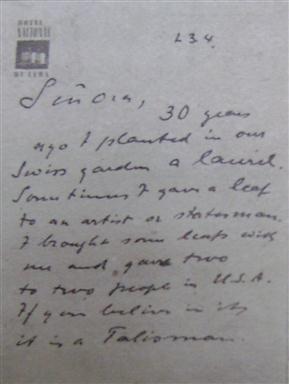 HOTEL
NACIONAL
DE CUBA
L 34.
Señora, 30 years
ago I planted in our
Swiss garden a laurel.
Sometimes I gave a leaf
to an artist or statesman.
I brought some leafs with
me and gave two
to two people in U.S.A.
If you believe in it,
it is a Talisman.